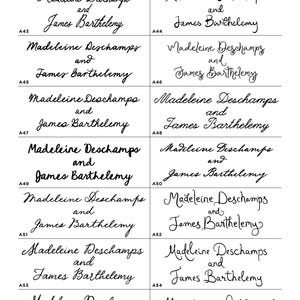 Madeleine Deschamps
and
James Barthelemy
A43
and
James Barthelemy
A44
Madeleine Deschamps
and
James Barthelemy
A45
Madeleine Deschamps
and
James Barthelemy
A46
Madeleine Deschamps
and
James Barthelemy
A47
Madeleine Deschamps
and
James Barthelemy
A48
Madeleine Deschamps
and
James Barthelemy
A49
Madeleine Deschamps
and
James Barthelemy
A50
Madeleine Deschamps
and
James Barthelemy
A51
Madeleine Deschamps
and
James Barthelemy
A52
Madeleine Deschamps
and
James Barthelemy
A53
Madeleine Deschamps
and
James Barthelemy
A54